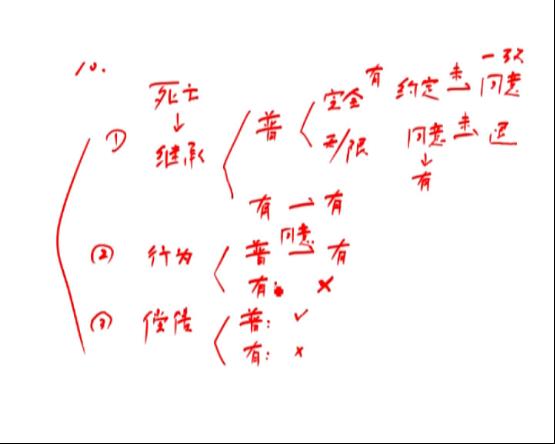 10.
① 死亡 ↓ 继承
普
完全 有 约定 未→ 一致同意
无/限 同意 未→ 退
↓
有
有 → 有
② 行为
普 同意→ 有
有: ×
③ 偿债
普: ✓
有: ×